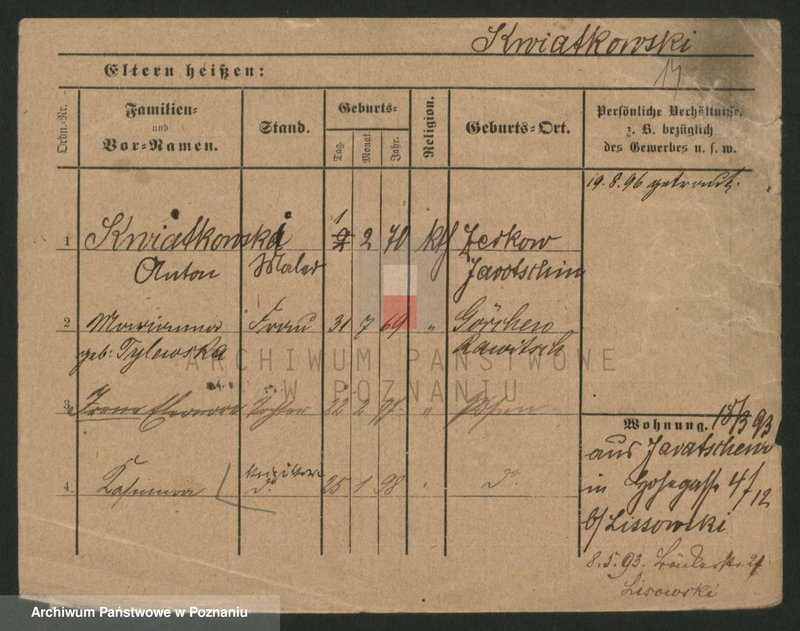 Kwiatkowski
14
Eltern heißen:
Ordn.-Nr.
Familien- und Vor-Namen.
Stand.
Geburts-
Tag.
Monat.
Jahr.
Religion.
Geburts-Ort.
Persönliche Verhältnisse,
z. B. bezüglich
des Gewerbes u. s. w.
19.8.96 getraut.
1 Kwiatkowski 1 2 70 kth Zerkow
Anton Maler Jarotschin
2 Marianna Frau 31 7 69 " Görchen
geb: Tylewska Rawitsch
ARCHIWUM PAŃSTWOWE
W POZNANIU
3 Irene Eleonora Tochter 22 2 97 " Posen
Wohnung. 15/3 93
aus Jarotschin
4. Kasimira d° 25 1 98 " d°
in 4/12
b/ Lissowski
8.5.93. 24
Lisowski
Archiwum Państwowe w Poznaniu